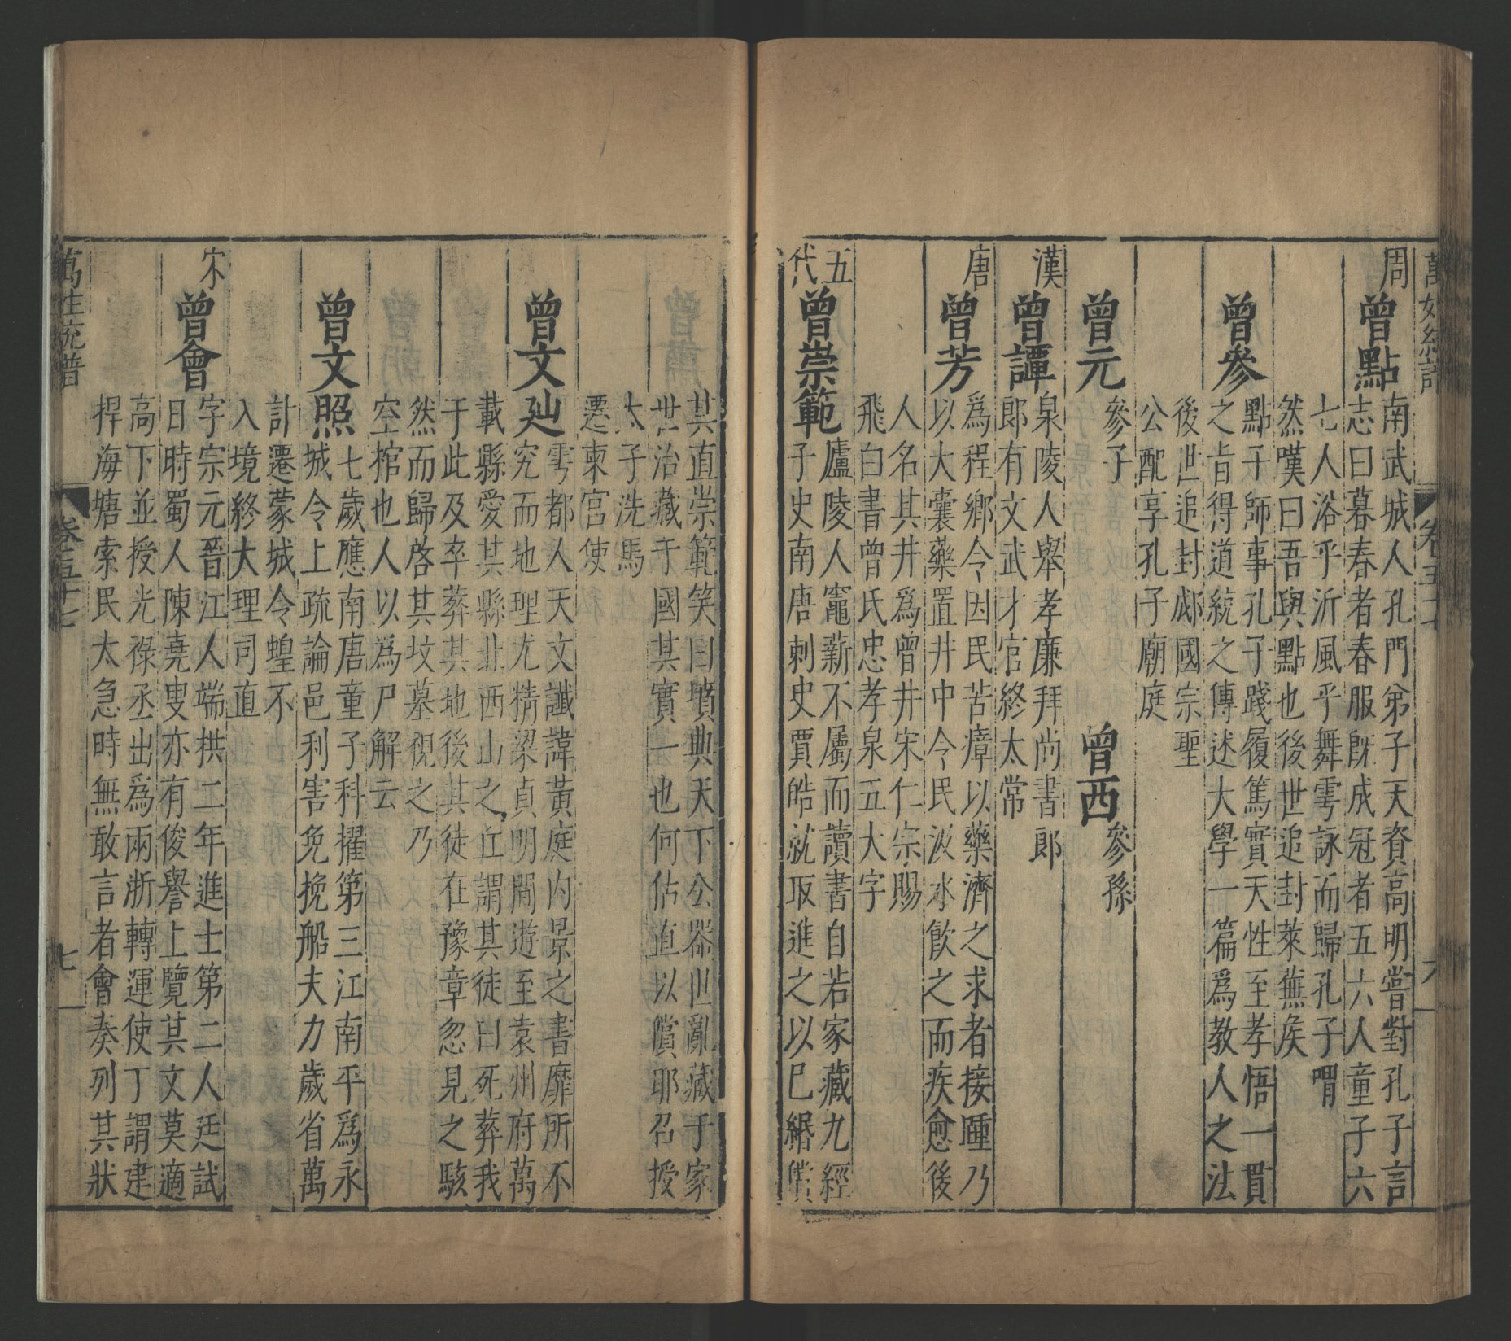 萬姓統譜 卷五十七 六
周 曾點 南武城人孔門弟子天資高明嘗對孔子言
志曰暮春者春服旣成冠者五六人童子六
七人浴乎沂風乎舞雩詠而歸孔子喟
然嘆曰吾與點也後世追封萊蕪矦
曾參 點子師事孔子踐履篤實天性至孝悟一貫
之旨得道統之傳述大學一篇爲教人之法
後世追封郕國宗聖
公配享孔子廟庭
曾元 參子 曾西 參孫
漢 曾譚 泉陵人舉孝廉拜尚書郎
郎有文武才官終太常
唐 曾芳 爲程鄉令因民苦瘴以藥濟之求者接踵乃
以大囊藥置井中令民汲水飲之而疾愈後
人名其井爲曾井宋仁宗賜
飛白書曾氏忠孝泉五大字
五代 曾崇範 廬陵人竈薪不屬而讀書自若家藏九經
子史南唐刺史賈皓就取進之以已緡償
其直崇範笑曰墳典天下公器世亂藏于家
世治藏于國其實一也何估直以償耶召授
太子洗馬
遷東宮使
曾文辿 雩都人天文讖諱黃庭內景之書靡所不
究而地理尤精梁貞明間遊至袁州府萬
載縣愛其縣北西山之丘謂其徒曰死葬我
于此及卒葬其地後其徒在豫章忽見之駭
然而歸啓其坟墓視之乃
空棺也人以爲尸解云
曾文照 七歲應南唐童子科擢第三江南平爲永
城令上疏論邑利害免挽船夫力歲省萬
計遷蒙城令蝗不
入境終大理司直
宋 曾會 字宗元晉江人端拱二年進士第二人廷試
日時蜀人陳堯叟亦有俊譽上覽其文莫適
高下並授光祿丞出爲兩浙轉運使丁謂建
捍海塘索民太急時無敢言者會奏列其狀
萬姓統譜 卷五十七 七